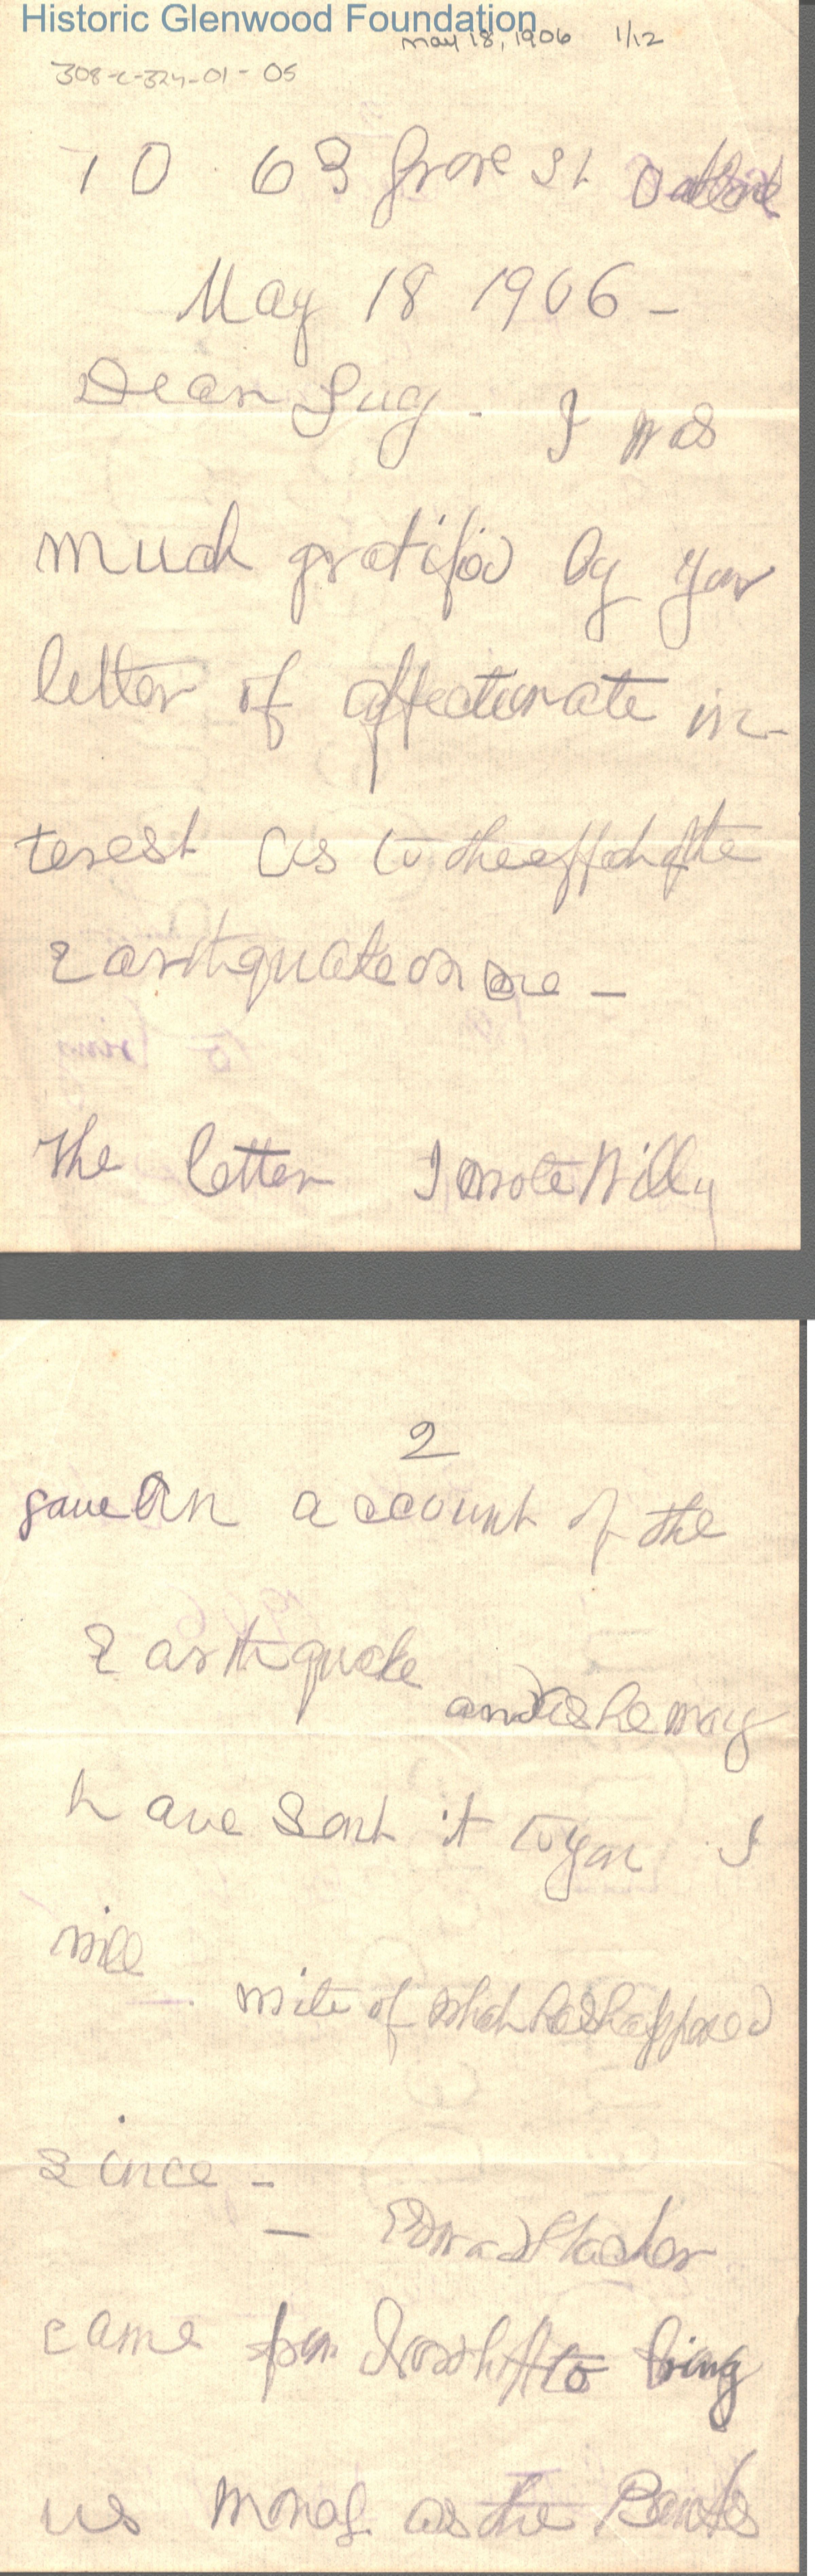 Historic Glenwood Foundation
May 18, 1906 1/12
308-c-324-01-05
1063 Grove St Oakland
May 18 1906 -
Dear Guy - I was
much gratified by your
letter of affectionate in-
terest as to the effect of the
Earthquake on me -
The letter I wrote Willy
2
gave an account of the
Earthquake and as he may
have sent it to you I
will
write of what has happened
since -
- Edward
came from to bring
us money as the Banks